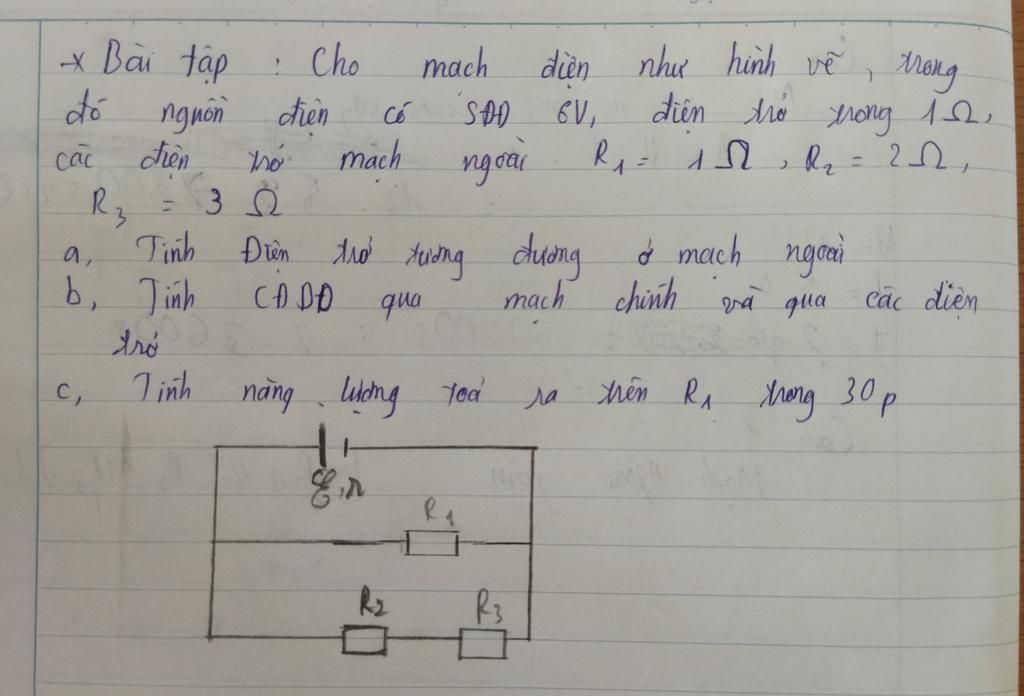 * Bài tập : Cho mạch điện như hình vẽ, trong
đó nguồn điện có SĐĐ 6V, điện trở trong 1Ω,
các điện trở mạch ngoài R₁ = 1Ω, R₂ = 2Ω,
R₃ = 3 Ω
a, Tính Điện trở tương đương ở mạch ngoài
b, Tính CĐDĐ qua mạch chính và qua các điện
trở
c, Tính năng lượng toả ra trên R₁ trong 30p
ℰ,r
R₁
R₂ R₃